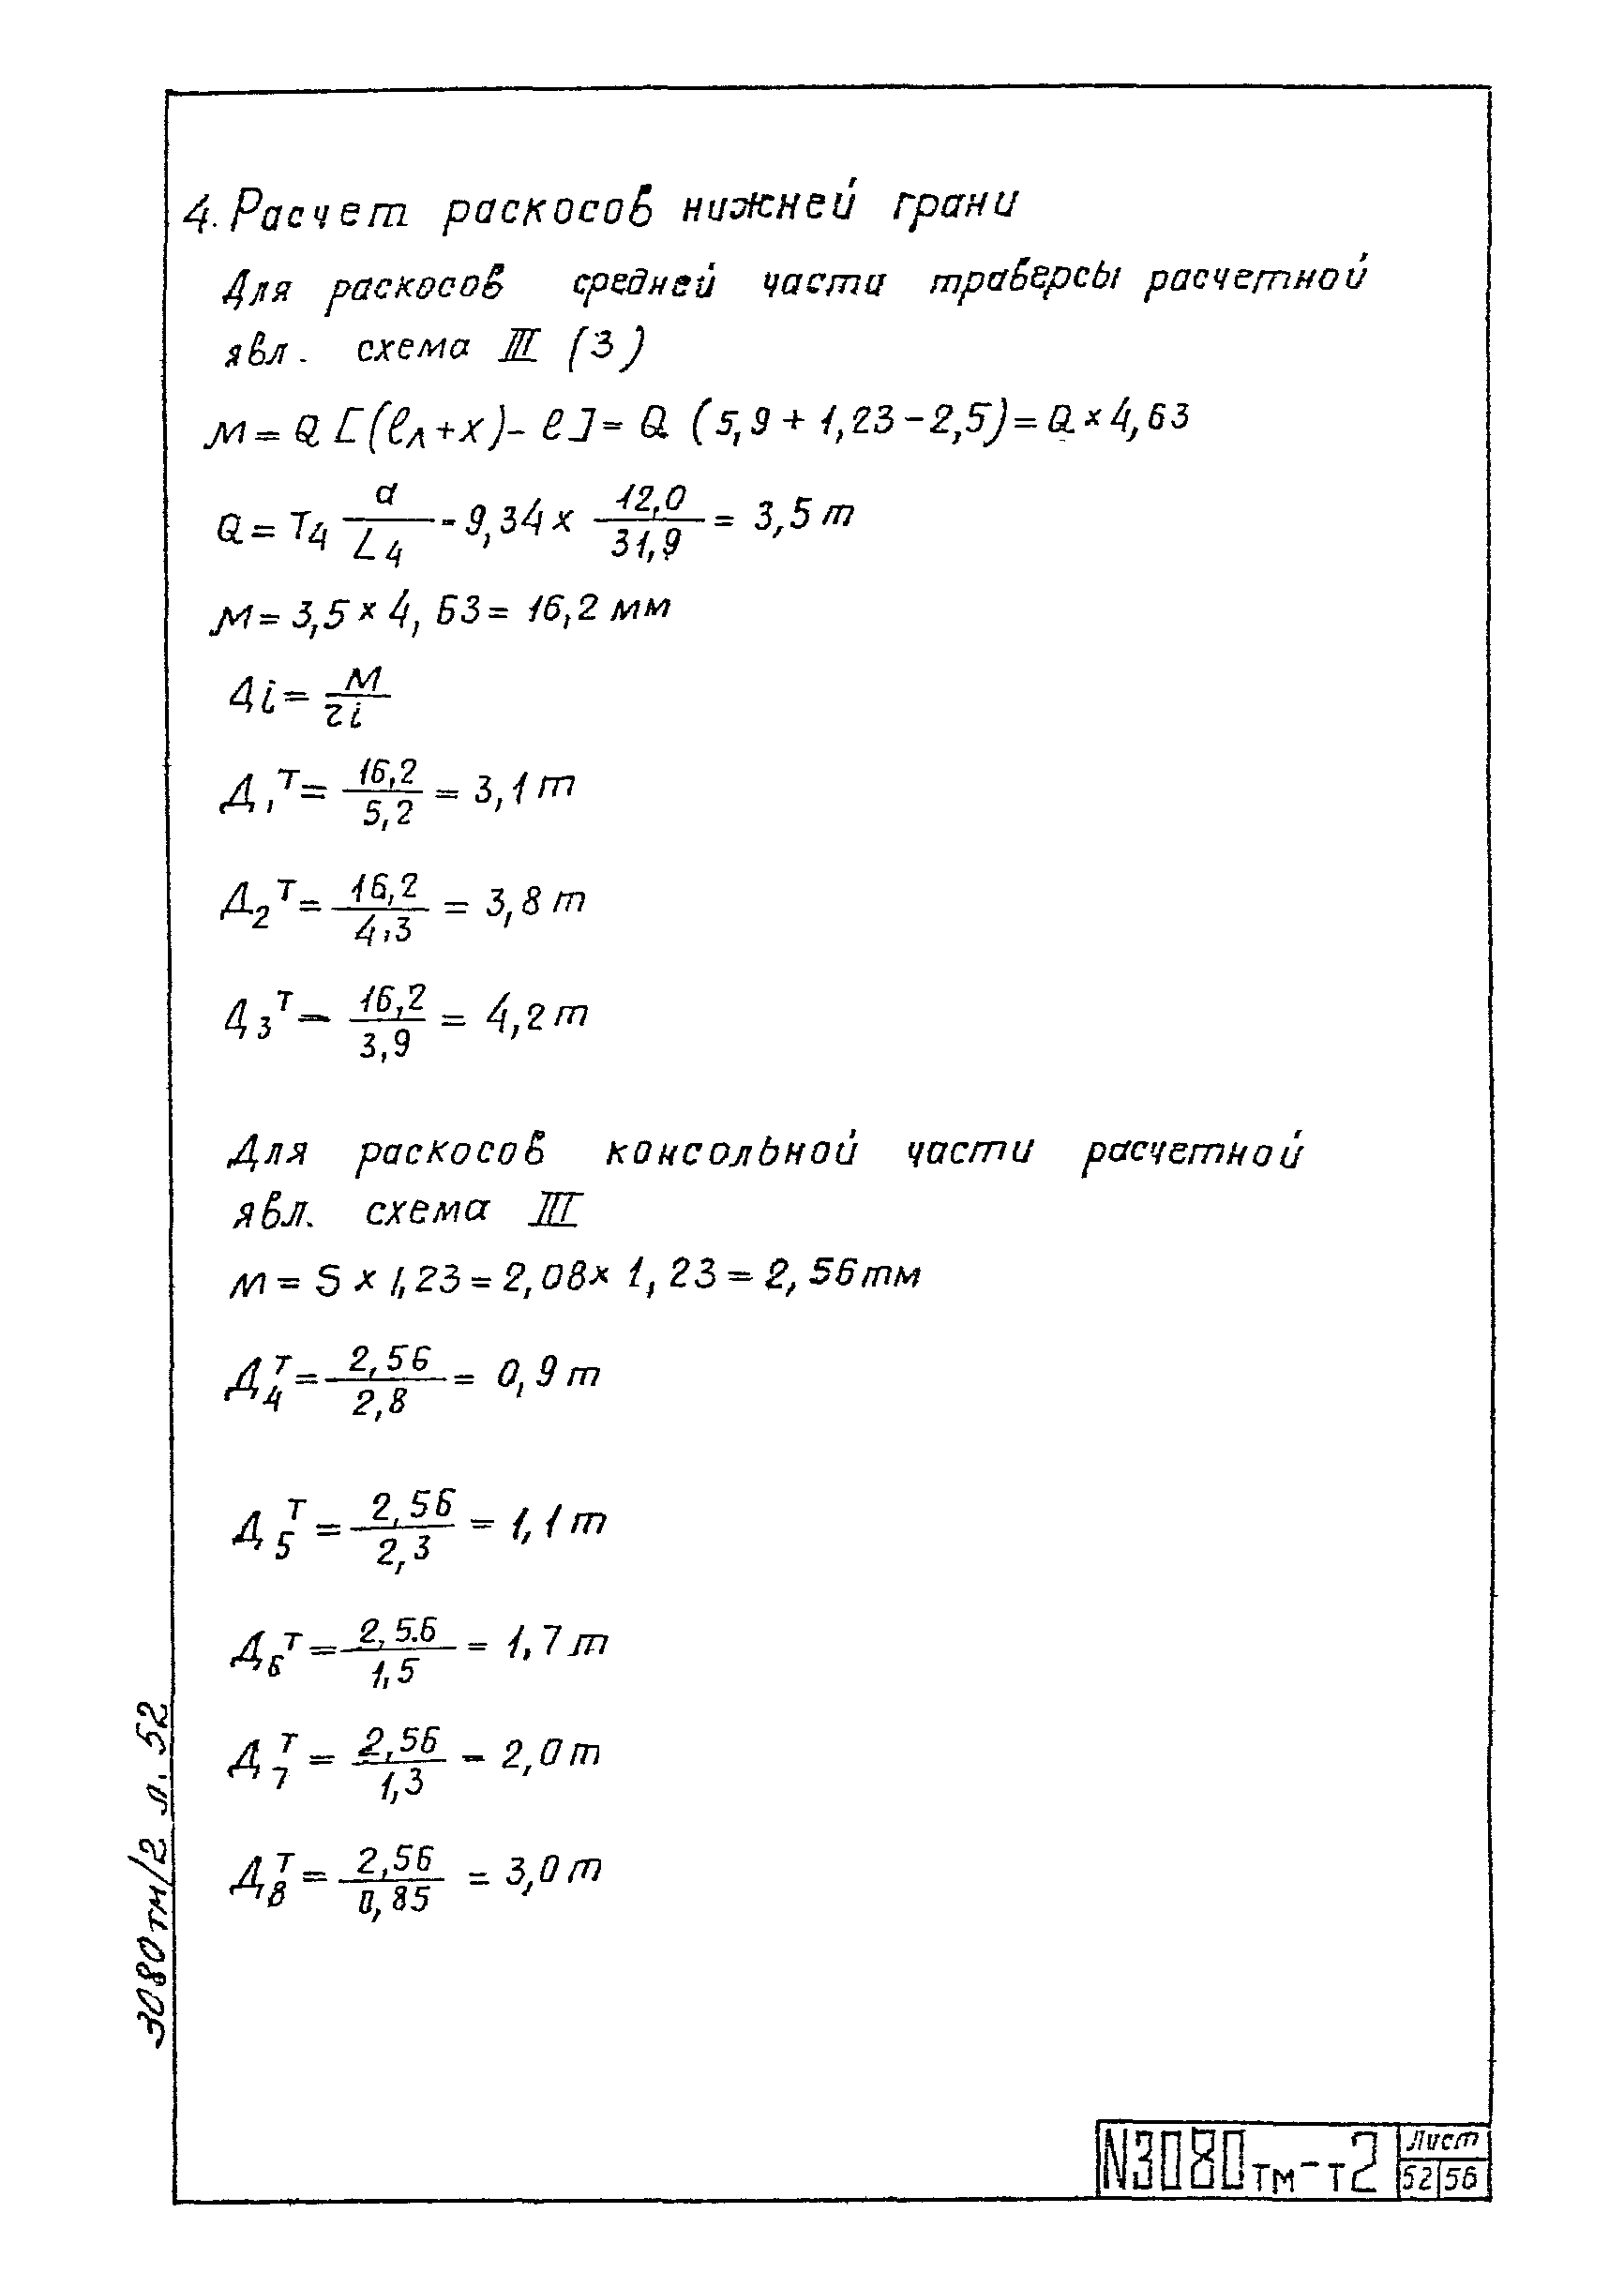 4. Расчет раскосов нижней грани
Для раскосов средней части траверсы расчетной
явл. схема III (3)
M = Q [(ℓл + x) - ℓ] = Q (5,9 + 1,23 - 2,5) = Q × 4,63
Q = T4 a/L4 - 9,34 × 12,0/31,9 = 3,5 т
M = 3,5 × 4,63 = 16,2 мм
Дi = M/ri
Д1ᵀ = 16,2/5,2 = 3,1 т
Д2ᵀ = 16,2/4,3 = 3,8 т
Д3ᵀ - 16,2/3,9 = 4,2 т
Для раскосов консольной части расчетной
явл. схема III
M = S × 1,23 = 2,08 × 1,23 = 2,56 тм
Д4ᵀ = 2,56/2,8 = 0,9 т
Д5ᵀ = 2,56/2,3 = 1,1 т
Д6ᵀ = 2,56/1,5 = 1,7 т
Д7ᵀ = 2,56/1,3 - 2,0 т
Д8ᵀ = 2,56/0,85 = 3,0 т
3080тм/2 л. 52
N3080тм-т2
Лист
52 56